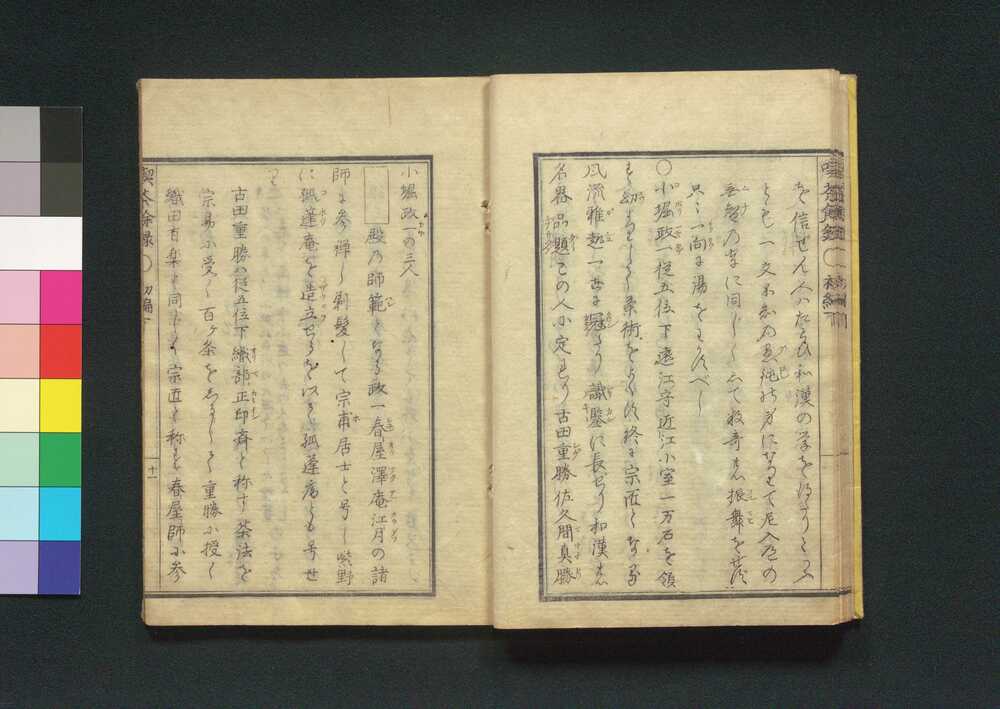 を信せん人はたとひ和漢の学を得たりとふ
とも一文不知の愚鈍の身になして尼入道の
無智の輩に同しくして数奇者振舞をせす
只々一向に湯をわかすべし
〇小堀政一従五位下遠江守近江小室一万石を領
す幼より茶術をよくし終に宗匠となる
風流雅趣一世に冠たり識鑒に長せり和漢
名器品題この人に定まれり古田重勝佐久間真勝
小堀政一の三人
殿の師範となる政一春屋澤庵江月の諸
師に参禅し剃髪して宗甫居士と号し紫野
に孤蓬庵を造立せるを以て孤蓬庵とも号せ
り
古田重勝は従五位下織部正印斎と称す茶法を
宗易に受く百ヶ条をしるして重勝に授く
織田有楽と同しく宗匠と称す春屋師に参
喫茶余録 〇 初編
十一